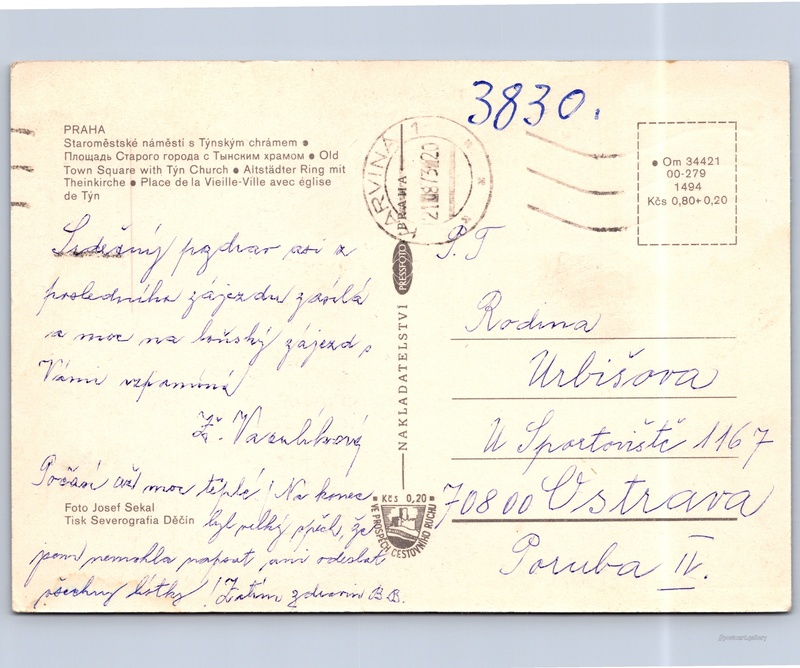 3830.
PRAHA
Staroměstské náměstí s Týnským chrámem •
Площадь Старого города с Тынским храмом • Old
Town Square with Týn Church • Altstädter Ring mit
Theinkirche • Place de la Vieille-Ville avec église
de Týn
KARVINÁ 1
• Om 34421
00-279
1494
Kčs 0,80+0,20
Srdečný pozdrav asi z
posledního zájezdu zasílá
a moc na loňský zájezd s
Vámi vzpomíná
Ž.
Počasí moc teplé! Na konec
byl velký spěch, že
jsem nemohla napsat ani odeslat
všechny lístky! Zatím zdravím B.B.
Foto Josef Sekal
Tisk Severografia Děčín
NAKLADATELSTVÍ PRESSFOTO PRAHA
Kčs 0,20
VE PROSPĚCH CESTOVNÍHO RUCHU
P.T
Rodina
Urbišova
U Sportoviště 1167
70800 Ostrava
Poruba IV.